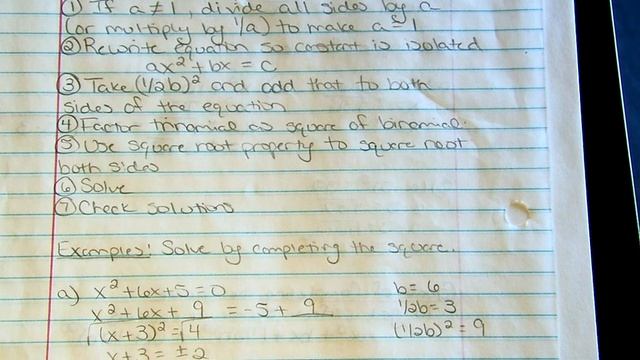 ① If a ≠ 1, divide all sides by a
(or multiply by 1/a) to make a = 1
② Rewrite equation so constant is isolated
ax² + bx = c
③ Take (1/2b)² and add that to both
sides of the equation
④ Factor trinomial as square of binomial.
⑤ Use square root property to square root
both sides
⑥ Solve
⑦ Check solutions
Examples: Solve by completing the square.
a) x² + 6x + 5 = 0
x² + 6x + 9 = -5 + 9
√(x + 3)² = √4
x + 3 = ± 2
b = 6
1/2b = 3
(1/2b)² = 9